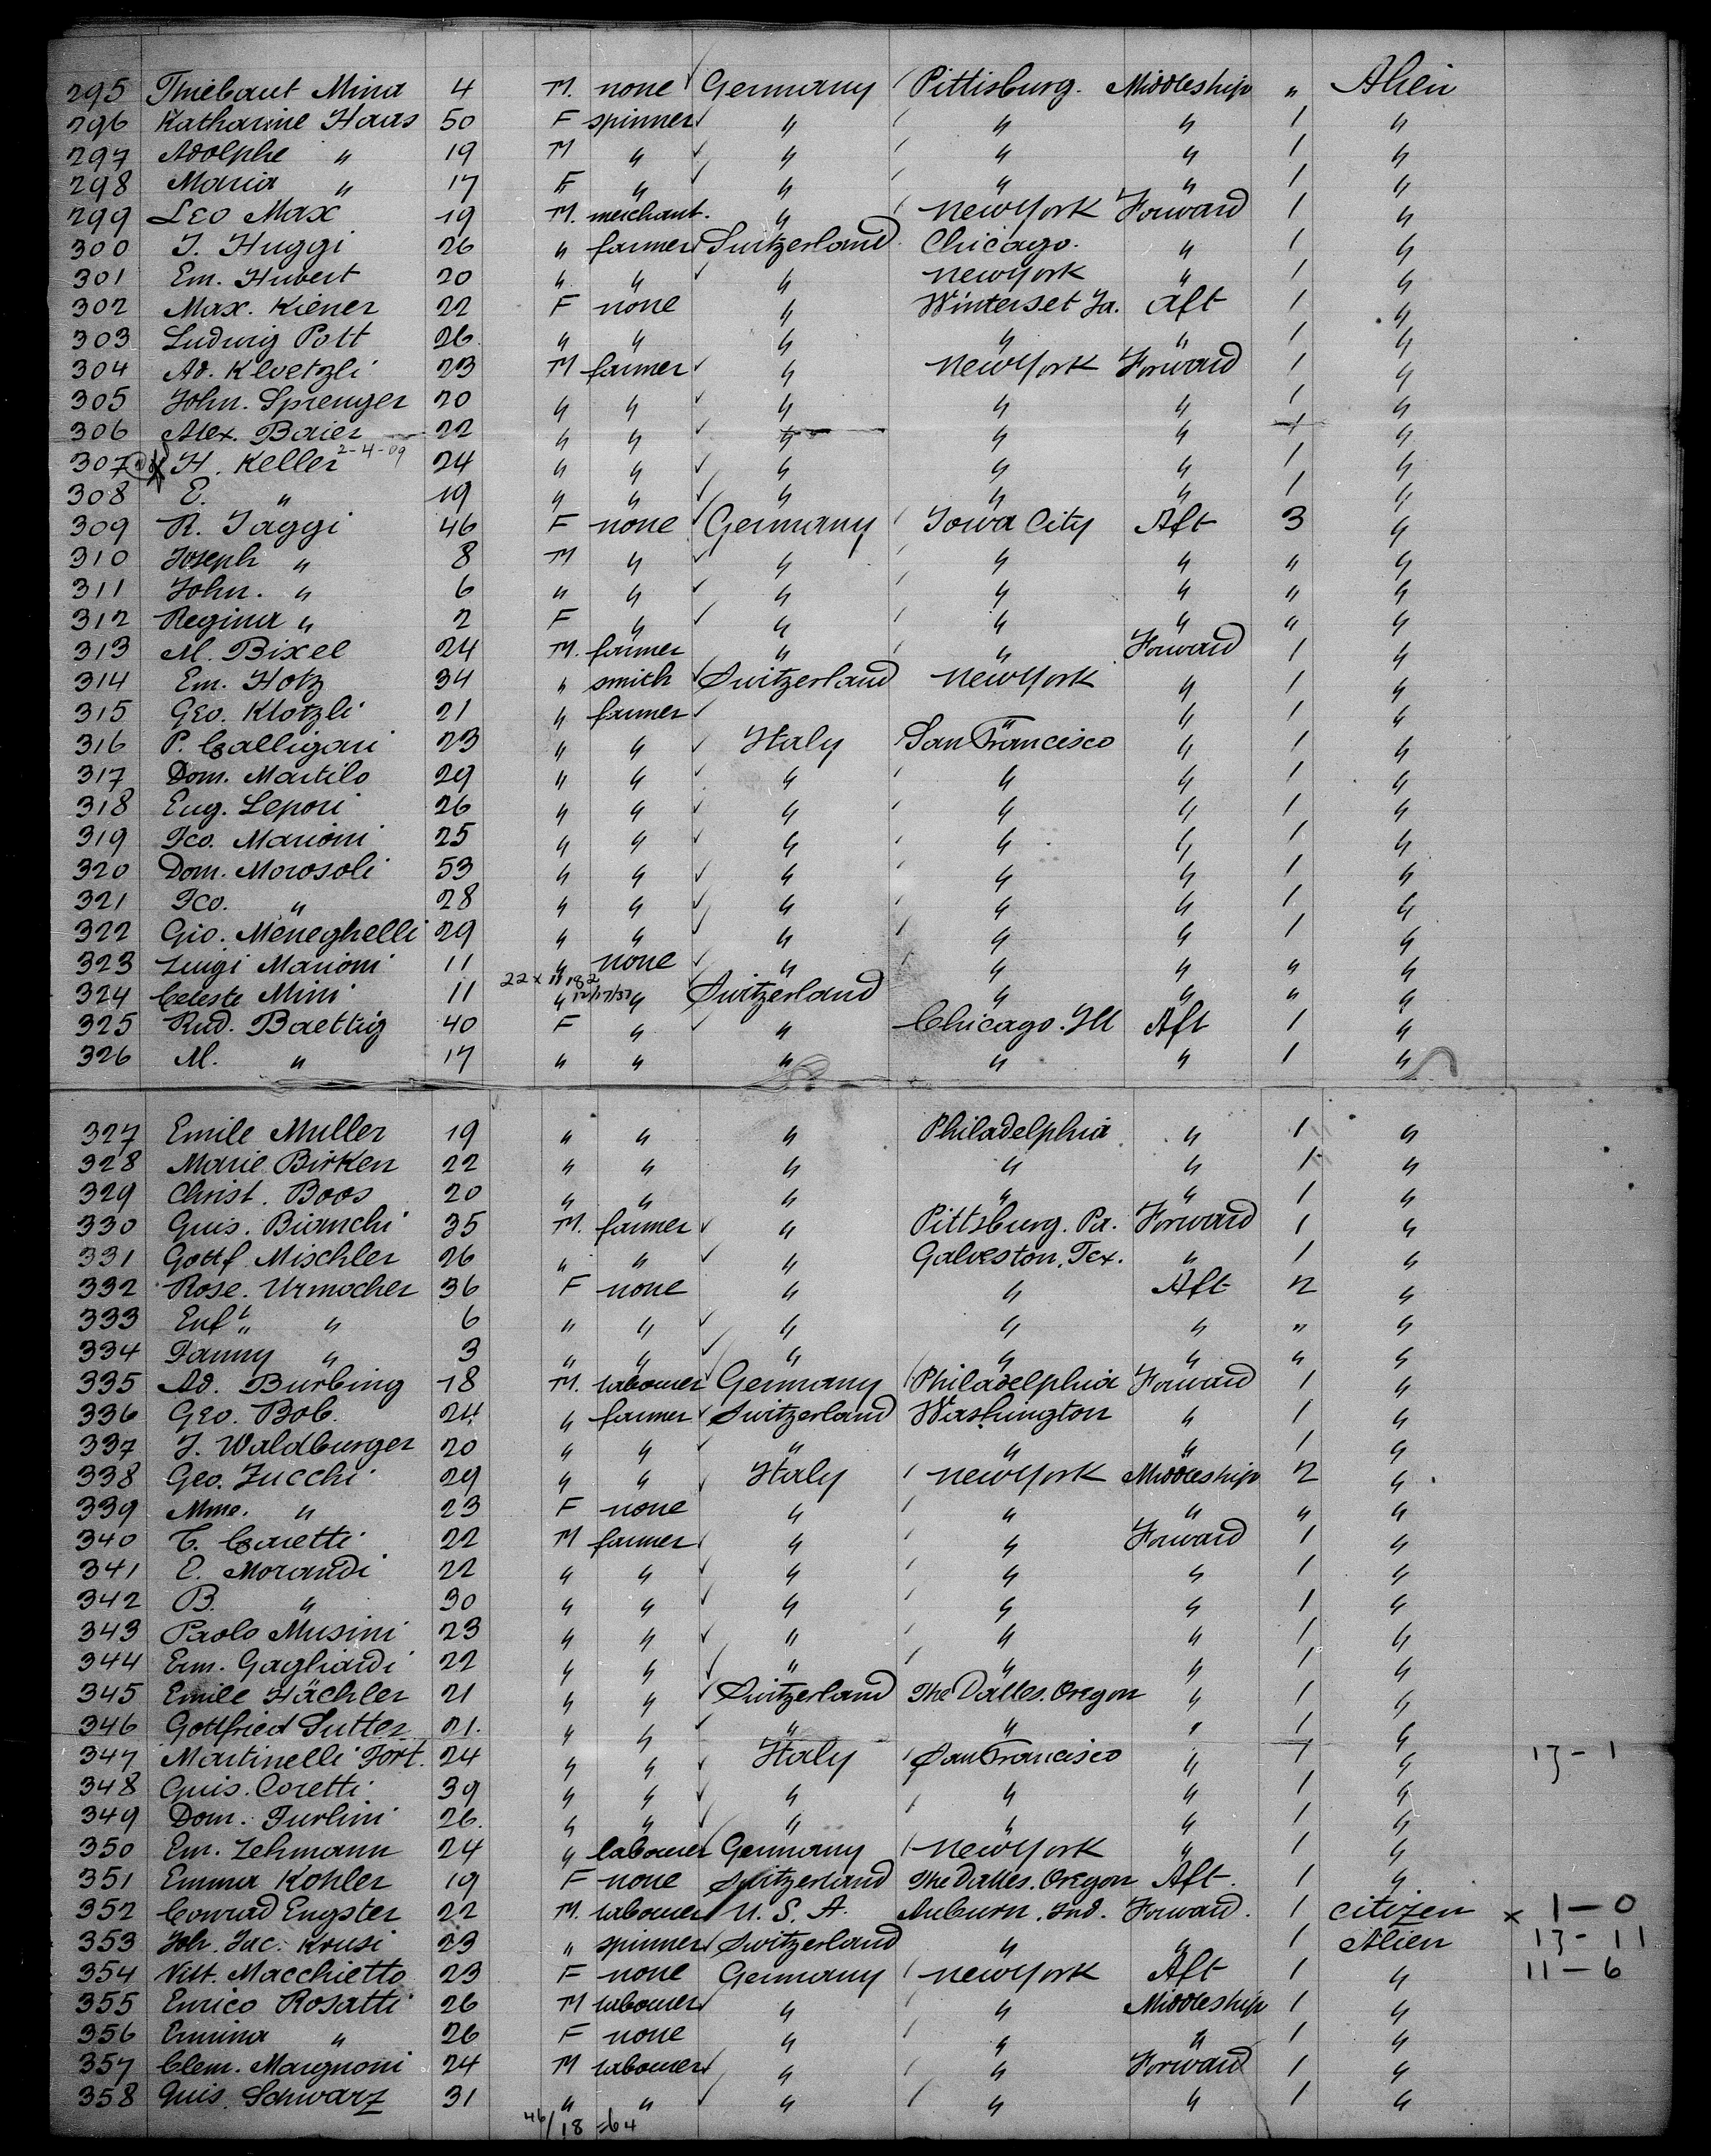 295 Thiebaut Mina 4 M. none Germany Pittisburg. Middleship " Alien
296 Katharine Haas 50 F spinner " " " 1 "
297 Adolphe " 19 M " " " " 1 "
298 Maria " 17 F " " " " 1 "
299 Leo Max 19 M. merchant. " New York Forward 1 "
300 J. Huggi 26 " farmer Switzerland Chicago. " 1 "
301 Em. Hubert 20 " " " New York " 1 "
302 Max. Kiener 22 F none " Winterset Ja. Aft 1 "
303 Ludwig Pott 26. " " " " " 1 "
304 Ad. Kloetzli 23 M farmer " New York Forward 1 "
305 John. Sprenger 20 " " " " " 1 "
306 Alex. Baier 22 " " " " " 1 "
307 H. Keller 2-4-09 24 " " " " " 1 "
308 E. " 19 " " " " " 1 "
309 R. Jäggi 46 F none Germany Iowa City Aft 3 "
310 Joseph " 8 M " " " " " "
311 John. " 6 " " " " " " "
312 Regina " 2 F " " " " " "
313 M. Bixel 24 M. farmer " " Forward 1 "
314 Em. Hotz 34 " smith Switzerland New York " 1 "
315 Geo. Klotzli 21 " farmer " " 1 "
316 P. Calligari 23 " " Italy San Francisco " 1 "
317 Dom. Martilo 29 " " " " " 1 "
318 Eug. Lepori 26 " " " " " 1 "
319 Fco. Marioni 25 " " " " " 1 "
320 Dom. Morosoli 53 " " " " " 1 "
321 Fco. " 28 " " " " " 1 "
322 Gio. Meneghelli 29 " " " " " 1 "
323 Luigi Marioni 11 " none " " " " "
324 Celeste Mini 11 22 x 11182 12/17/37 " " Switzerland " " " "
325 Rud. Baettig 40 F " " Chicago. Ill Aft 1 "
326 M. " 17 " " " " " 1 "
327 Emile Muller 19 " " " Philadelphia " 1 "
328 Marie Birken 22 " " " " " 1 "
329 Christ. Boos 20 " " " " " 1 "
330 Guis. Bianchi 35 M. farmer " Pittsburg. Pa. Forward 1 "
331 Gottf Mischler 26 " " " Galveston, Tex. " 1 "
332 Rose. Urmacher 36 F none " " Aft 2 "
333 Enft " 6 " " " " " " "
334 Fanny " 3 " " " " " " "
335 Ad. Burbing 18 M. labourer Germany Philadelphia Forward 1 "
336 Geo. Bob. 24 " farmer Switzerland Washington " 1 "
337 J. Waldburger 20 " " " " " 1 "
338 Geo. Zucchi 29 " " Italy New York Middleship 2 "
339 Mme. " 23 F none " " " " "
340 C. Caretti 22 M farmer " " Forward 1 "
341 E. Morandi 22 " " " " " 1 "
342 B. " 30 " " " " " 1 "
343 Paolo Musini 23 " " " " " 1 "
344 Erm. Gagliardi 22 " " " " " 1 "
345 Emile Hächler 21 " " Switzerland The Dalles. Oregon " 1 "
346 Gottfried Sutter 21. " " " " " 1 "
347 Martinelli Fort. 24 " " Italy San Francisco " 1 " 13 - 1
348 Guis. Coretti 39 " " " " " 1 "
349 Dom. Furlini 26. " " " " " 1 "
350 Em. Lehmann 24 " labourer Germany New York " 1 "
351 Emma Kohler 19 F none Switzerland The Dalles. Oregon Aft. 1 "
352 Conrad Engster 22 M. labourer U. S. A. Auburn. Ind. Forward. 1 citizen x 1 - 0
353 Joh. Jac. Krusi 23 " spinner Switzerland " " 1 Alien 13 - 11
354 Vitt. Macchietto 23 F none Germany New York Aft 1 " 11 - 6
355 Enrico Rosatti 26 M labourer " " Middleship 1 "
356 Emina " 26 F none " " " 1 "
357 Clem. Margnoni 24 M labourer " " Forward 1 "
358 Guis. Schwarz 31 " " " " " 1 "
46/18 = 64